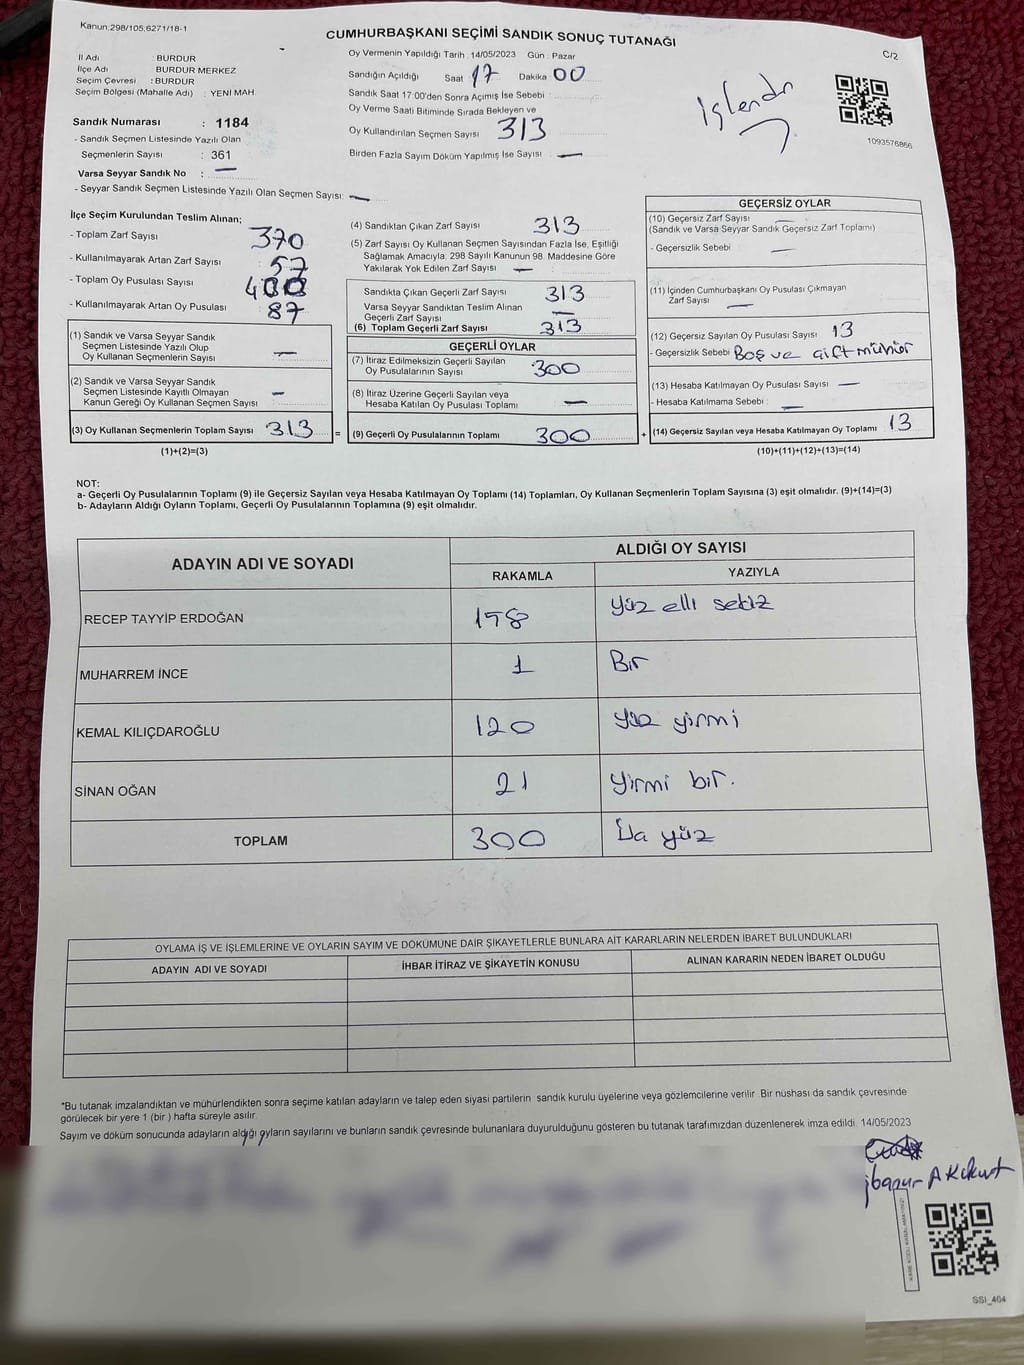 Kanun.298/105,6271/18-1
CUMHURBAŞKANI SEÇİMİ SANDIK SONUÇ TUTANAĞI
C/2
İl Adı : BURDUR
İlçe Adı BURDUR MERKEZ
Seçim Çevresi : BURDUR
Seçim Bölgesi (Mahalle Adı) : YENİ MAH.
Oy Vermenin Yapıldığı Tarih 14/05/2023 Gün : Pazar
Sandığın Açıldığı Saat 17 Dakika 00
Sandık Saat 17:00'den Sonra Açımış İse Sebebi :
Oy Verme Saati Bitiminde Sırada Bekleyen ve
Oy Kullandırılan Seçmen Sayısı 313
Birden Fazla Sayım Döküm Yapılmış İse Sayısı : —
işlendi
1093576866
Sandık Numarası : 1184
- Sandık Seçmen Listesinde Yazılı Olan
Seçmenlerin Sayısı : 361
Varsa Seyyar Sandık No : —
- Seyyar Sandık Seçmen Listesinde Yazılı Olan Seçmen Sayısı: —
İlçe Seçim Kurulundan Teslim Alınan;
- Toplam Zarf Sayısı 370
- Kullanılmayarak Artan Zarf Sayısı : 57
- Toplam Oy Pusulası Sayısı 400
- Kullanılmayarak Artan Oy Pusulası : 87
(1) Sandık ve Varsa Seyyar Sandık
Seçmen Listesinde Yazılı Olup
Oy Kullanan Seçmenlerin Sayısı : —
(2) Sandık ve Varsa Seyyar Sandık
Seçmen Listesinde Kayıtlı Olmayan
Kanun Gereği Oy Kullanan Seçmen Sayısı : —
(3) Oy Kullanan Seçmenlerin Toplam Sayısı 313 =
(1)+(2)=(3)
(4) Sandıktan Çıkan Zarf Sayısı : 313
(5) Zarf Sayısı Oy Kullanan Seçmen Sayısından Fazla İse, Eşitliği
Sağlamak Amacıyla, 298 Sayılı Kanunun 98. Maddesine Göre
Yakılarak Yok Edilen Zarf Sayısı — :
Sandıkta Çıkan Geçerli Zarf Sayısı : 313
Varsa Seyyar Sandıktan Teslim Alınan
Geçerli Zarf Sayısı : —
(6) Toplam Geçerli Zarf Sayısı : 313
GEÇERLİ OYLAR
(7) İtiraz Edilmeksizin Geçerli Sayılan
Oy Pusulalarının Sayısı : 300
(8) İtiraz Üzerine Geçerli Sayılan veya
Hesaba Katılan Oy Pusulası Toplamı : —
(9) Geçerli Oy Pusulalarının Toplamı : 300 +
GEÇERSİZ OYLAR
(10) Geçersiz Zarf Sayısı : —
(Sandık ve Varsa Seyyar Sandık Geçersiz Zarf Toplamı)
- Geçersizlik Sebebi : —
(11) İçinden Cumhurbaşkanı Oy Pusulası Çıkmayan
Zarf Sayısı : —
(12) Geçersiz Sayılan Oy Pusulası Sayısı : 13
- Geçersizlik Sebebi : Boş ve çift mühür
(13) Hesaba Katılmayan Oy Pusulası Sayısı : —
- Hesaba Katılmama Sebebi : —
(14) Geçersiz Sayılan veya Hesaba Katılmayan Oy Toplamı : 13
(10)+(11)+(12)+(13)=(14)
NOT:
a- Geçerli Oy Pusulalarının Toplamı (9) ile Geçersiz Sayılan veya Hesaba Katılmayan Oy Toplamı (14) Toplamları, Oy Kullanan Seçmenlerin Toplam Sayısına (3) eşit olmalıdır. (9)+(14)=(3)
b- Adayların Aldığı Oyların Toplamı, Geçerli Oy Pusulalarının Toplamına (9) eşit olmalıdır.
ADAYIN ADI VE SOYADI ALDIĞI OY SAYISI
RAKAMLA YAZIYLA
RECEP TAYYİP ERDOĞAN 158 Yüz elli sekiz
MUHARREM İNCE 1 Bir
KEMAL KILIÇDAROĞLU 120 Yüz yirmi
SİNAN OĞAN 21 Yirmi bir.
TOPLAM 300 Üç yüz
OYLAMA İŞ VE İŞLEMLERİNE VE OYLARIN SAYIM VE DÖKÜMÜNE DAİR ŞİKAYETLERLE BUNLARA AİT KARARLARIN NELERDEN İBARET BULUNDUKLARI
ADAYIN ADI VE SOYADI İHBAR İTİRAZ VE ŞİKAYETİN KONUSU ALINAN KARARIN NEDEN İBARET OLDUĞU
*Bu tutanak imzalandıktan ve mühürlendikten sonra seçime katılan adayların ve talep eden siyasi partilerin sandık kurulu üyelerine veya gözlemcilerine verilir. Bir nüshası da sandık çevresinde
görülecek bir yere 1 (bir ) hafta süreyle asılır
Sayım ve döküm sonucunda adayların aldığı oyların sayılarını ve bunların sandık çevresinde bulunanlara duyurulduğunu gösteren bu tutanak tarafımızdan düzenlenerek imza edildi. 14/05/2023
SSI_464